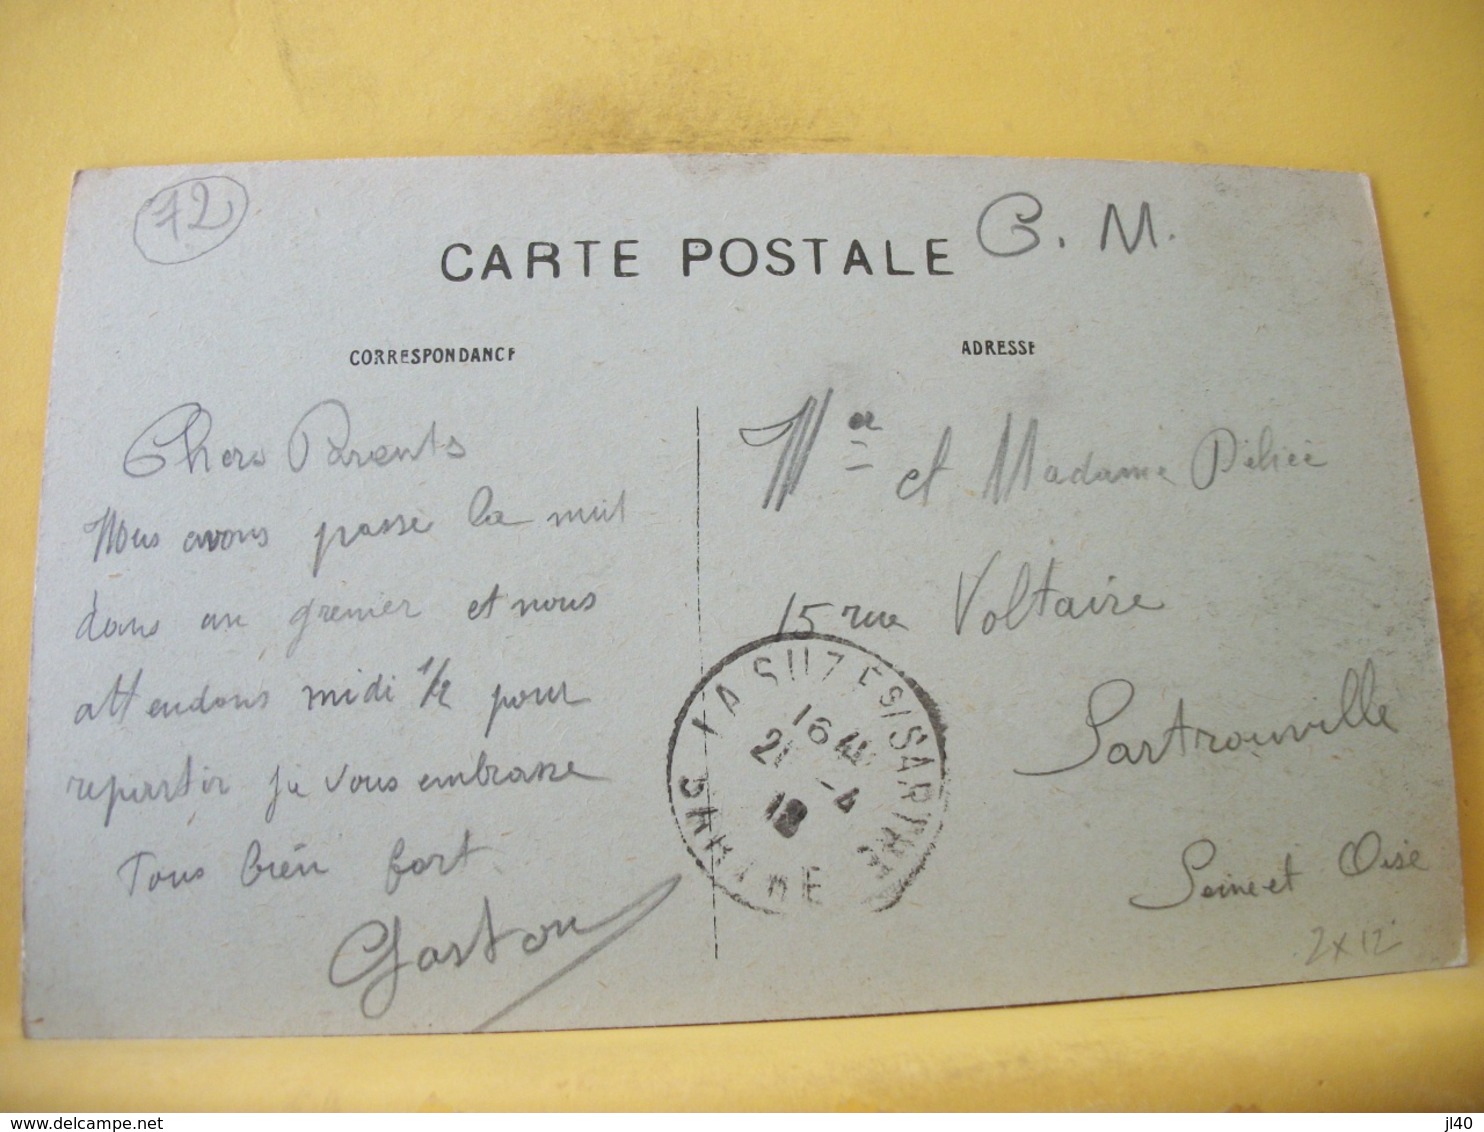 72
CARTE POSTALE G. M.
CORRESPONDANCE
ADRESSE
Chers Parents
Nous avons passé la nuit
dans un grenier et nous
attendons midi 1/2 pour
repartir je vous embrasse
Tous bien fort
Gaston
Mr et Madame
15 rue Voltaire
Sartrouville
Seine et Oise
2x12
LA SUZE S/SARTHE
16
21 -4
18
SARTHE
delcampe.net
jl40